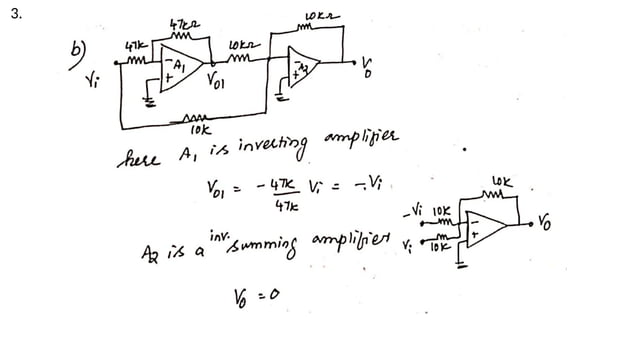 3.
b)
47K
47KΩ
10KΩ
10KΩ
Vi
- A1
+
V01
- A2
+
V0
10K
here A1 is inverting amplifier
V01 = - 47K/47K Vi = -Vi.
-Vi 10K
10K
Vi 10K
-
+
V0
A2 is a inv. summing amplifier
V0 = 0